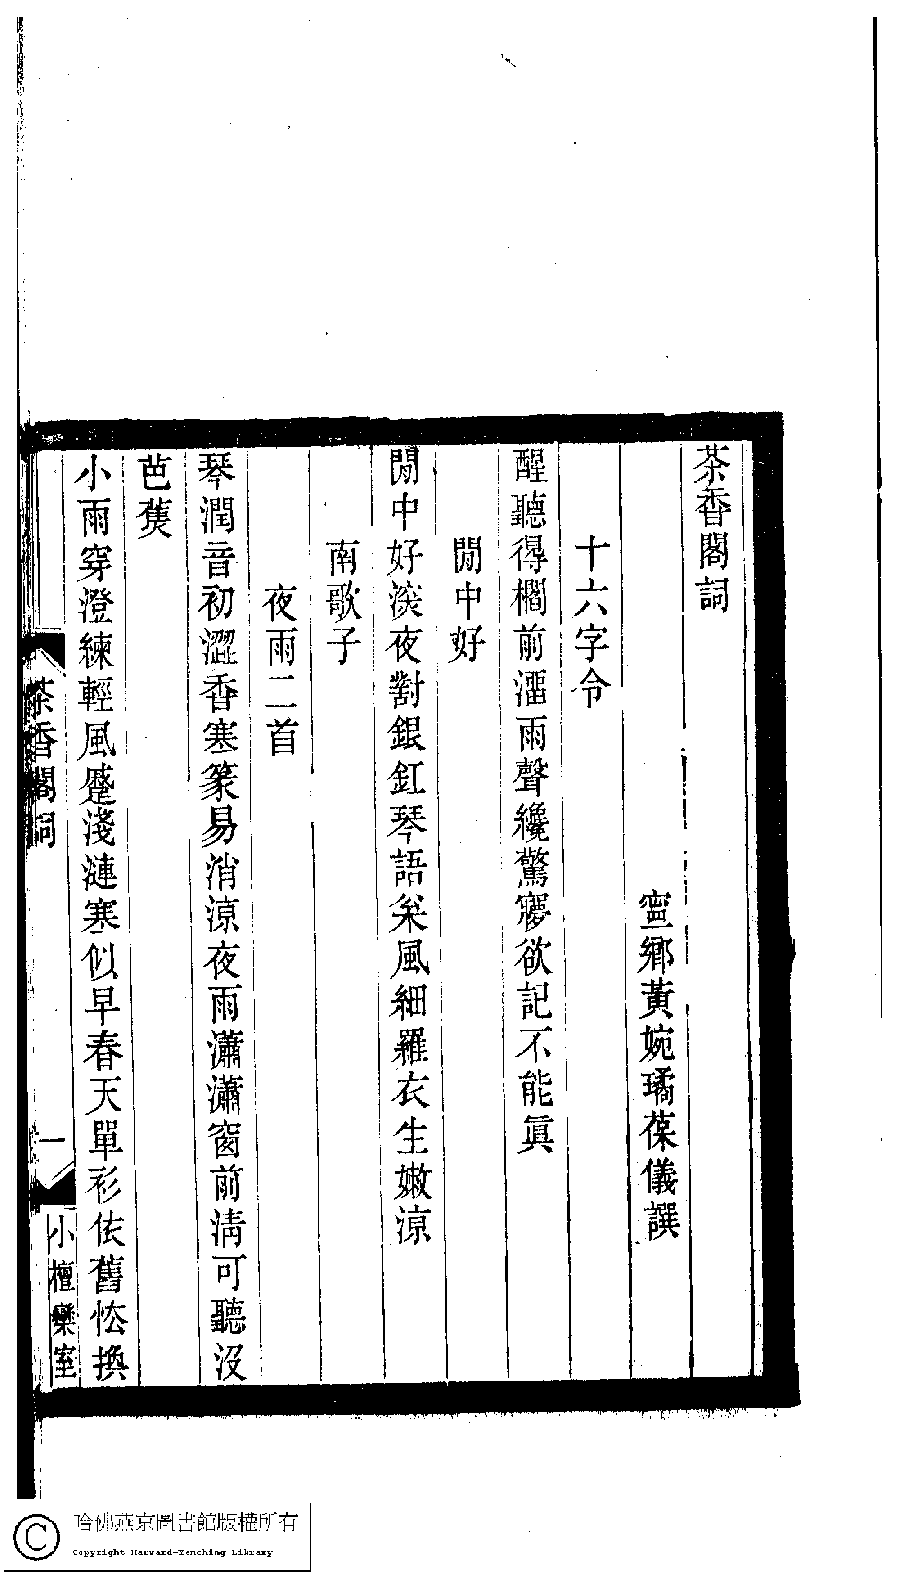 茶香閣詞
寍鄉黃婉璚葆儀譔
十六字令
醒聽得櫩前澑雨聲纔驚㝱欲記不能眞
閒中好
閒中好淡夜對銀釭琴語枀風細羅衣生嫩涼
南歌子
夜雨二首
琴潤音初澀香寒篆易消涼夜雨瀟瀟窗前淸可聽沒
芭蕉
小雨穿澄練輕風蹙淺漣寒似早春天單衫依舊怯換
茶香閣詞
一
小檀欒室
哈佛燕京圖書館版權所有
Copyright Harvard-Yenching Library